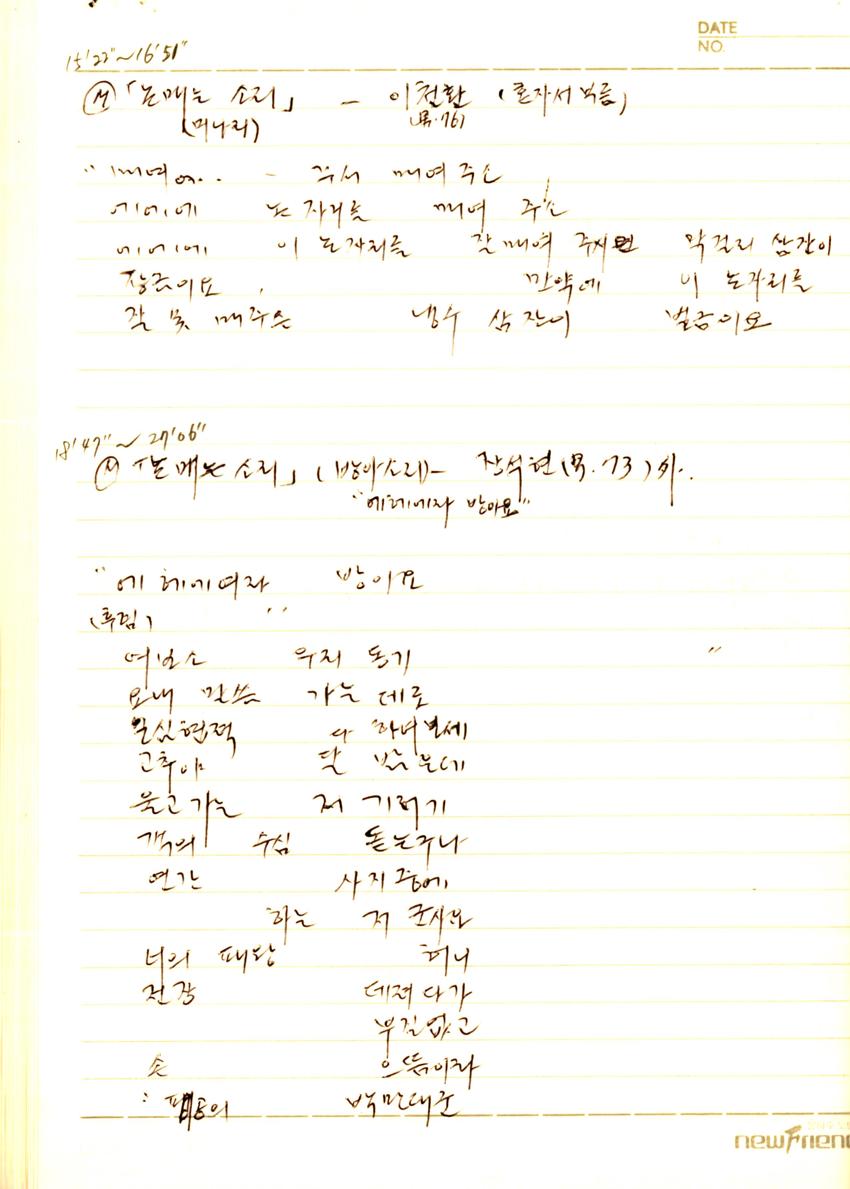 DATE
NO.
15'22"~16'51"
「논매는 소리」 - 이천환 (혼자서 부름)
(미나리) (男.76)
주서 매여주소
에이에 논자리를 매여 주소
에이에에 이 논자리를 잘 매여 주시면 막걸리 삼잔이
장근이요, 만약에 이 논자리를
잘 못 매주슨 냉수 삼잔이 벌금이요
18'47"~27'06"
「논매는 소리」 (방아소리)- 장석현 (男.73)外.
"에헤에자 방아요"
"에 헤에여자 방이요
(후렴) " "
여보소 우리 동기
요내 말씀 가는 데로
일심협력 다 하여보세
고추야 달 밝은데
울고가는 저 기러기
객의 수심 돋는구나
연간 사지중에
하는 저 군사요
너의 패왕 허니
전장 데져다가
부질없고
손 으뜸이라
: 패공의 백만대군
newFrien